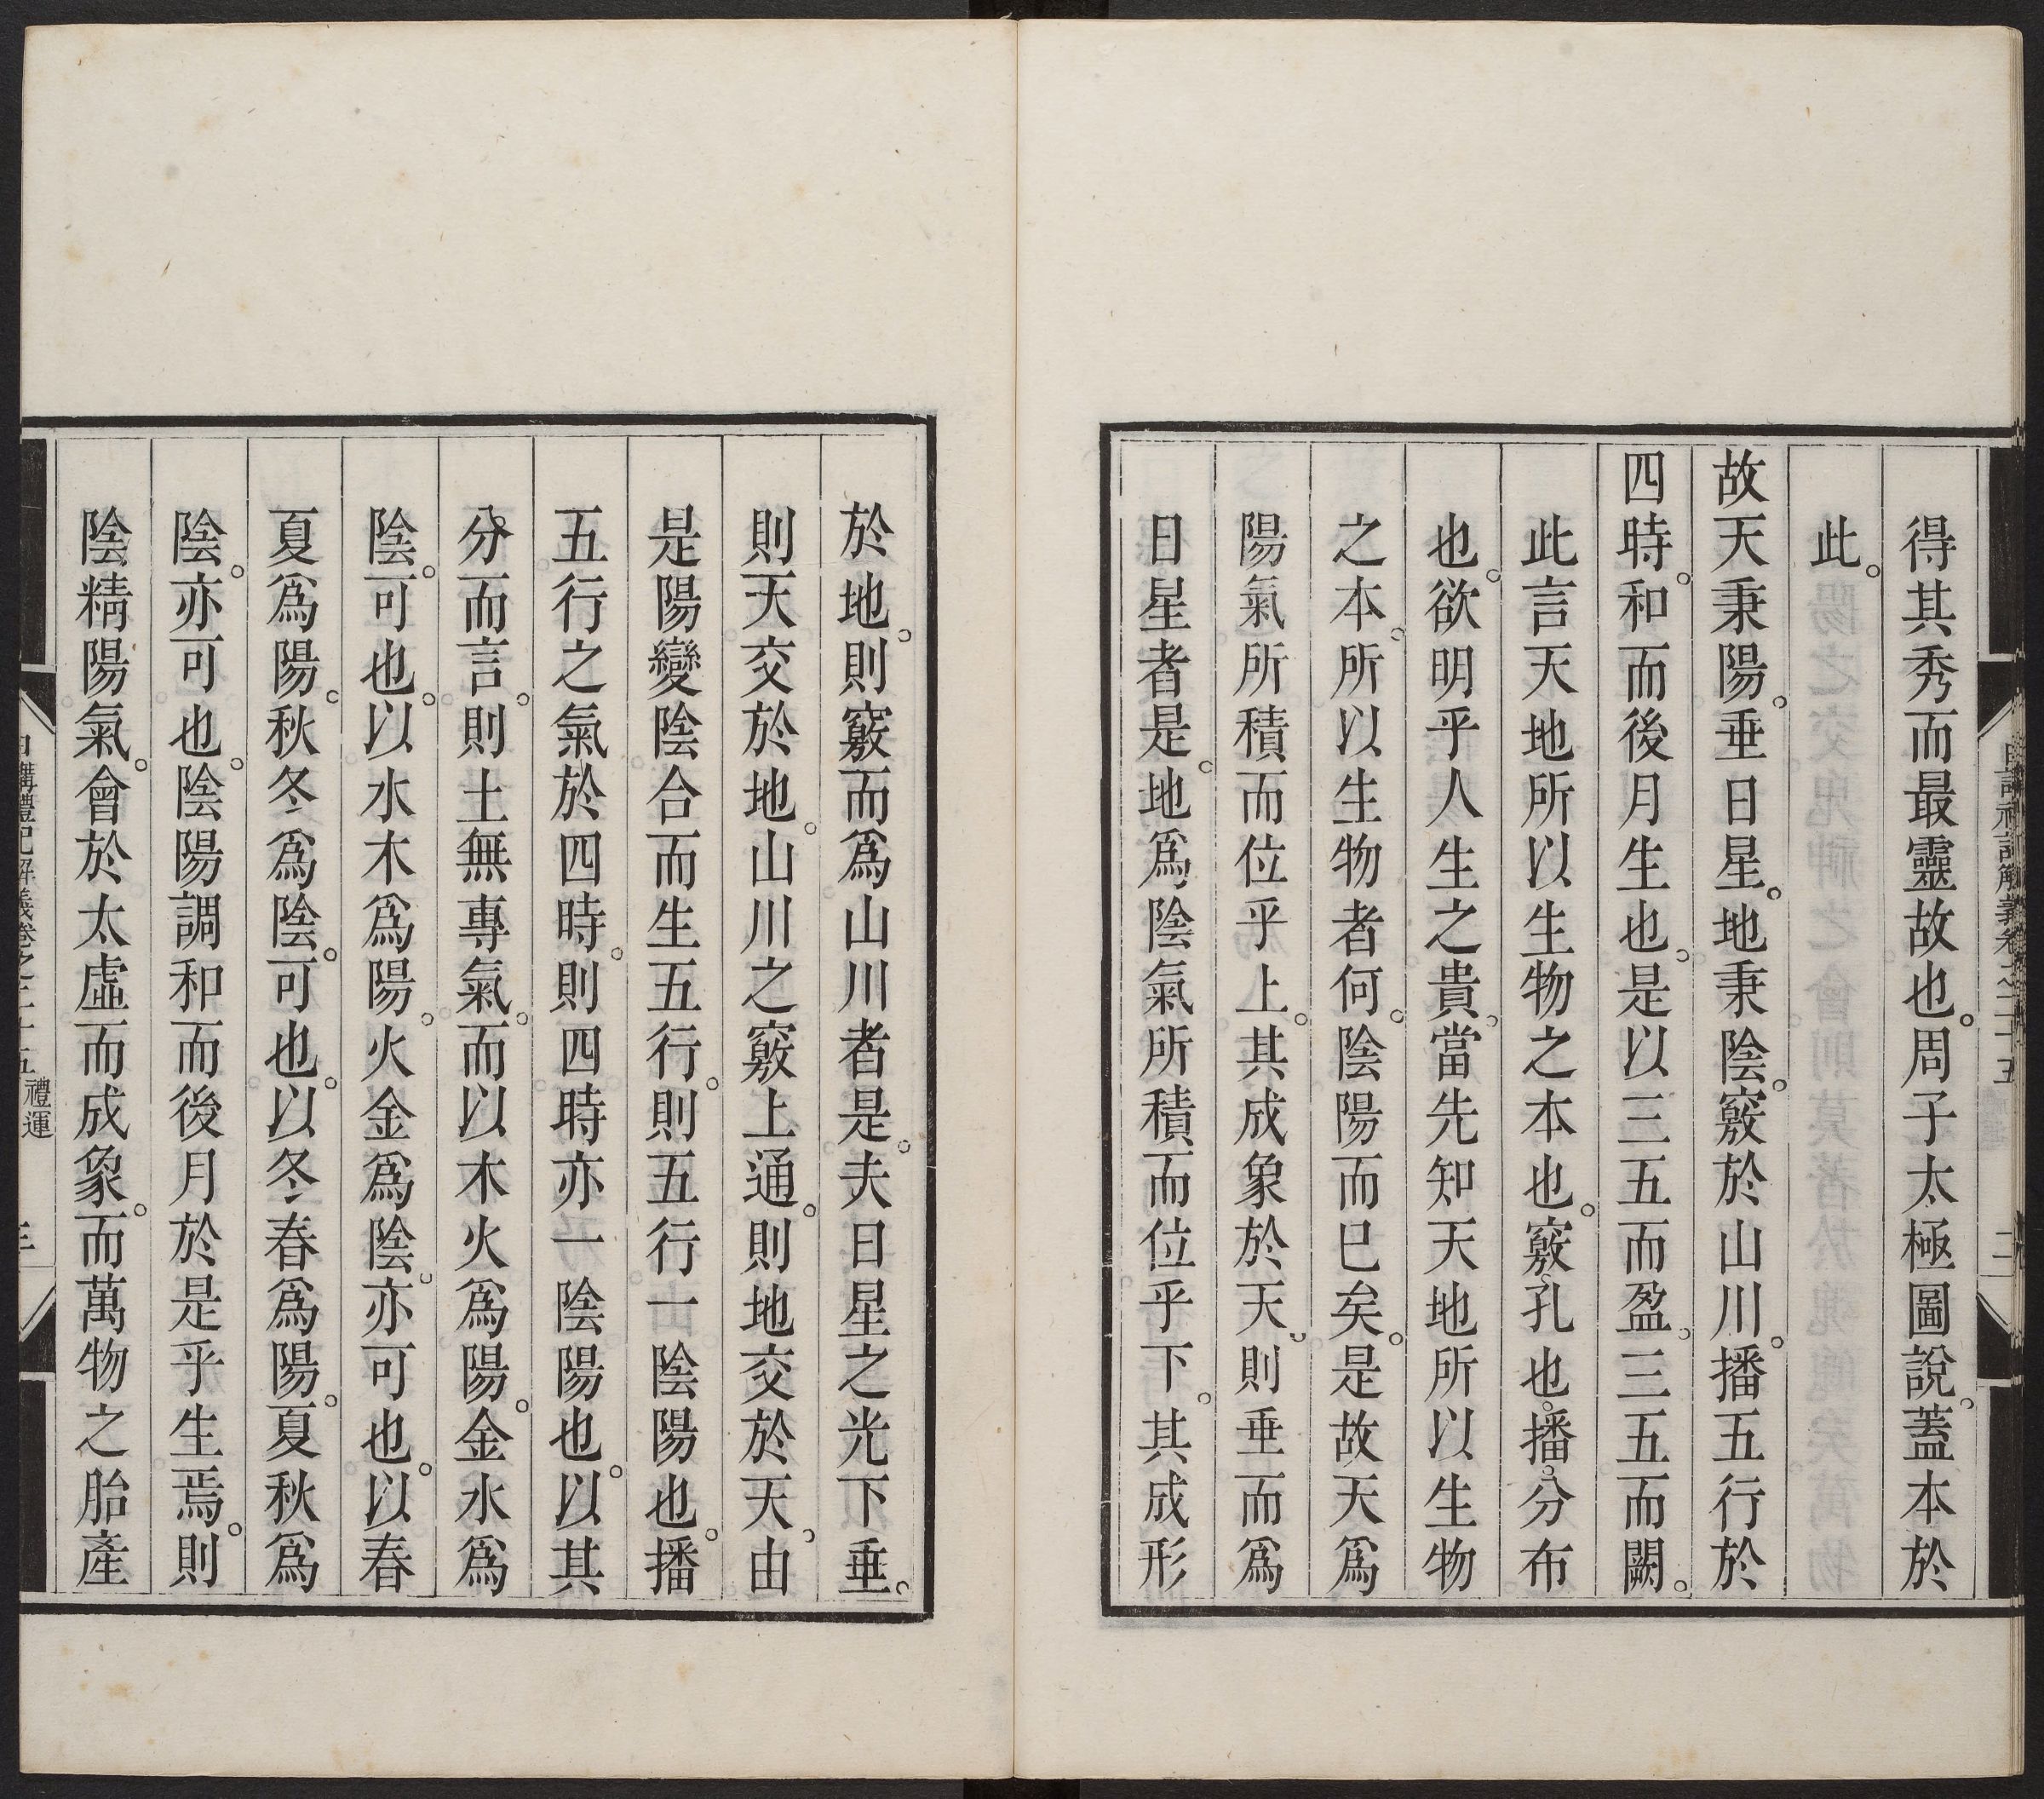 得其秀而最靈故也。周子太極圖說。蓋本於
此。
故天秉陽。垂日星。地秉陰。竅於山川。播五行於
四時。和而後月生也。是以三五而盈。三五而闕。
此言天地所以生物之本也。竅。孔也。播。分布
也。欲明乎人生之貴。當先知天地所以生物
之本。所以生物者何。陰陽而巳矣。是故天爲
陽氣所積而位乎上。其成象於天。則垂而爲
日星者是。地爲陰氣所積而位乎下。其成形
於地。則竅而爲山川者是。夫日星之光下垂。
則天交於地。山川之竅上通。則地交於天。由
是陽變陰合而生五行。則五行一陰陽也。播
五行之氣於四時。則四時亦一陰陽也。以其
分而言。則土無專氣。而以木火爲陽。金水爲
陰。可也。以水木爲陽。火金爲陰。亦可也。以春
夏爲陽。秋冬爲陰。可也。以冬春爲陽。夏秋爲
陰。亦可也。陰陽調和而後月於是乎生焉。則
陰精陽氣。會於太虛而成象。而萬物之胎產
日講禮記解義卷之二十五
禮運
三
日講禮記解義卷之二十五
二